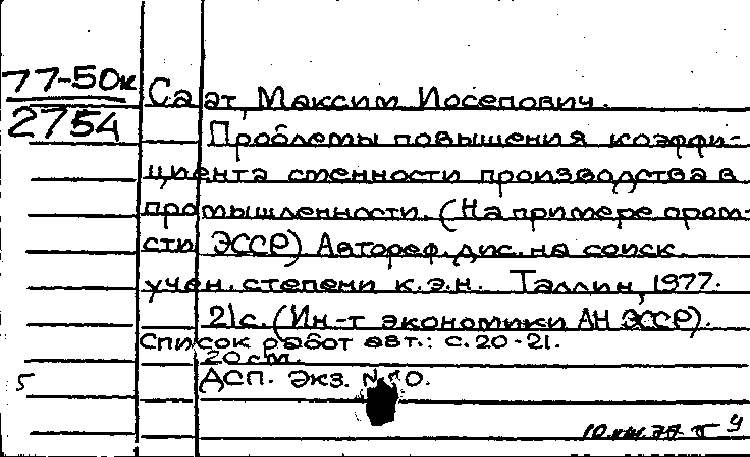 77-50к
2754
Саат, Максим Иосепович.
Проблемы повышения коэффи-
циента сменности производства в
промышленности. (На примере пром-
сти ЭССР) Автореф. дис. на соиск.
учен. степени к.э.н. Таллин, 1977.
21с. (Ин-т экономики АН ЭССР).
Список работ авт.: с. 20-21.
20см.
5 ДСП. Экз.